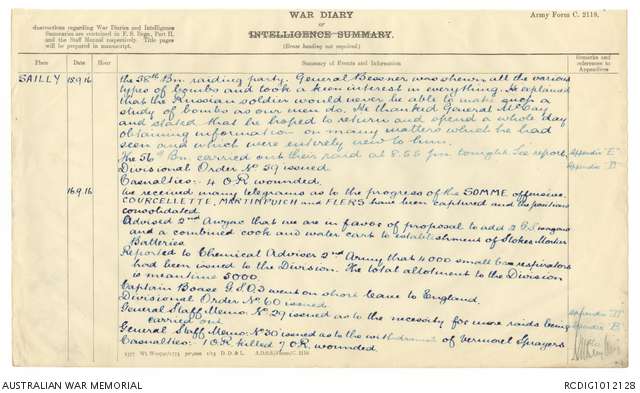 WAR DIARY
or
INTELLIGENCE SUMMARY.
(Erase heading not required.)
Army Form C. 2118.
Instructions regarding War Diaries and Intelligence
Summaries are contained in F. S. Regs., Part II.
and the Staff Manual respectively. Title pages
will be prepared in manuscript.
Place Date Hour Summary of Events and Information Remarks and references to Appendices
SAILLY 15.9.16 the 58th Bn. raiding party. General was shown all the various
types of bombs and took a keen interest in everything. He explained
that the Russian soldier would never be able to make such a
study of bombs as our men do. He thanked General McCay
and stated that he hoped to return and spend a whole day
obtaining information on many matters which he had
seen and which were entirely new to him.
The 56th Bn. carried out their raid at 8.55 pm tonight. See report. Appendix "E"
Divisional Order No 59 issued. Appendix
Casualties:- 4 O.R. wounded.
16.9.16 We received many telegrams as to the progress of the SOMME offensive.
COURCELLETTE, MARTINPUICH and FLERS have been captured and the positions
consolidated.
Advised 2nd Anzac that we are in favor of proposal to add 2 G.S. wagons
and a combined cook and water cart to establishment of Stokes Mortar
Batteries.
Reported to Chemical Adviser 2nd Army that 4000 small box respirators
had been issued to the Division. The total allotment to the Division
is meantime 5000.
Captain Boase G.S.O.3 went on short leave to England.
Divisional Order No 60 issued.
General Staff Memo. No 29 issued as to the necessity for more raids being Appendix
carried out. Appendix B
General Staff Memo. No 30 issued as to the withdrawal of Vermorel Sprayers
Casualties:- 1 O.R. killed 7 O.R. wounded.
AUSTRALIAN WAR MEMORIAL
RCDIG1012128